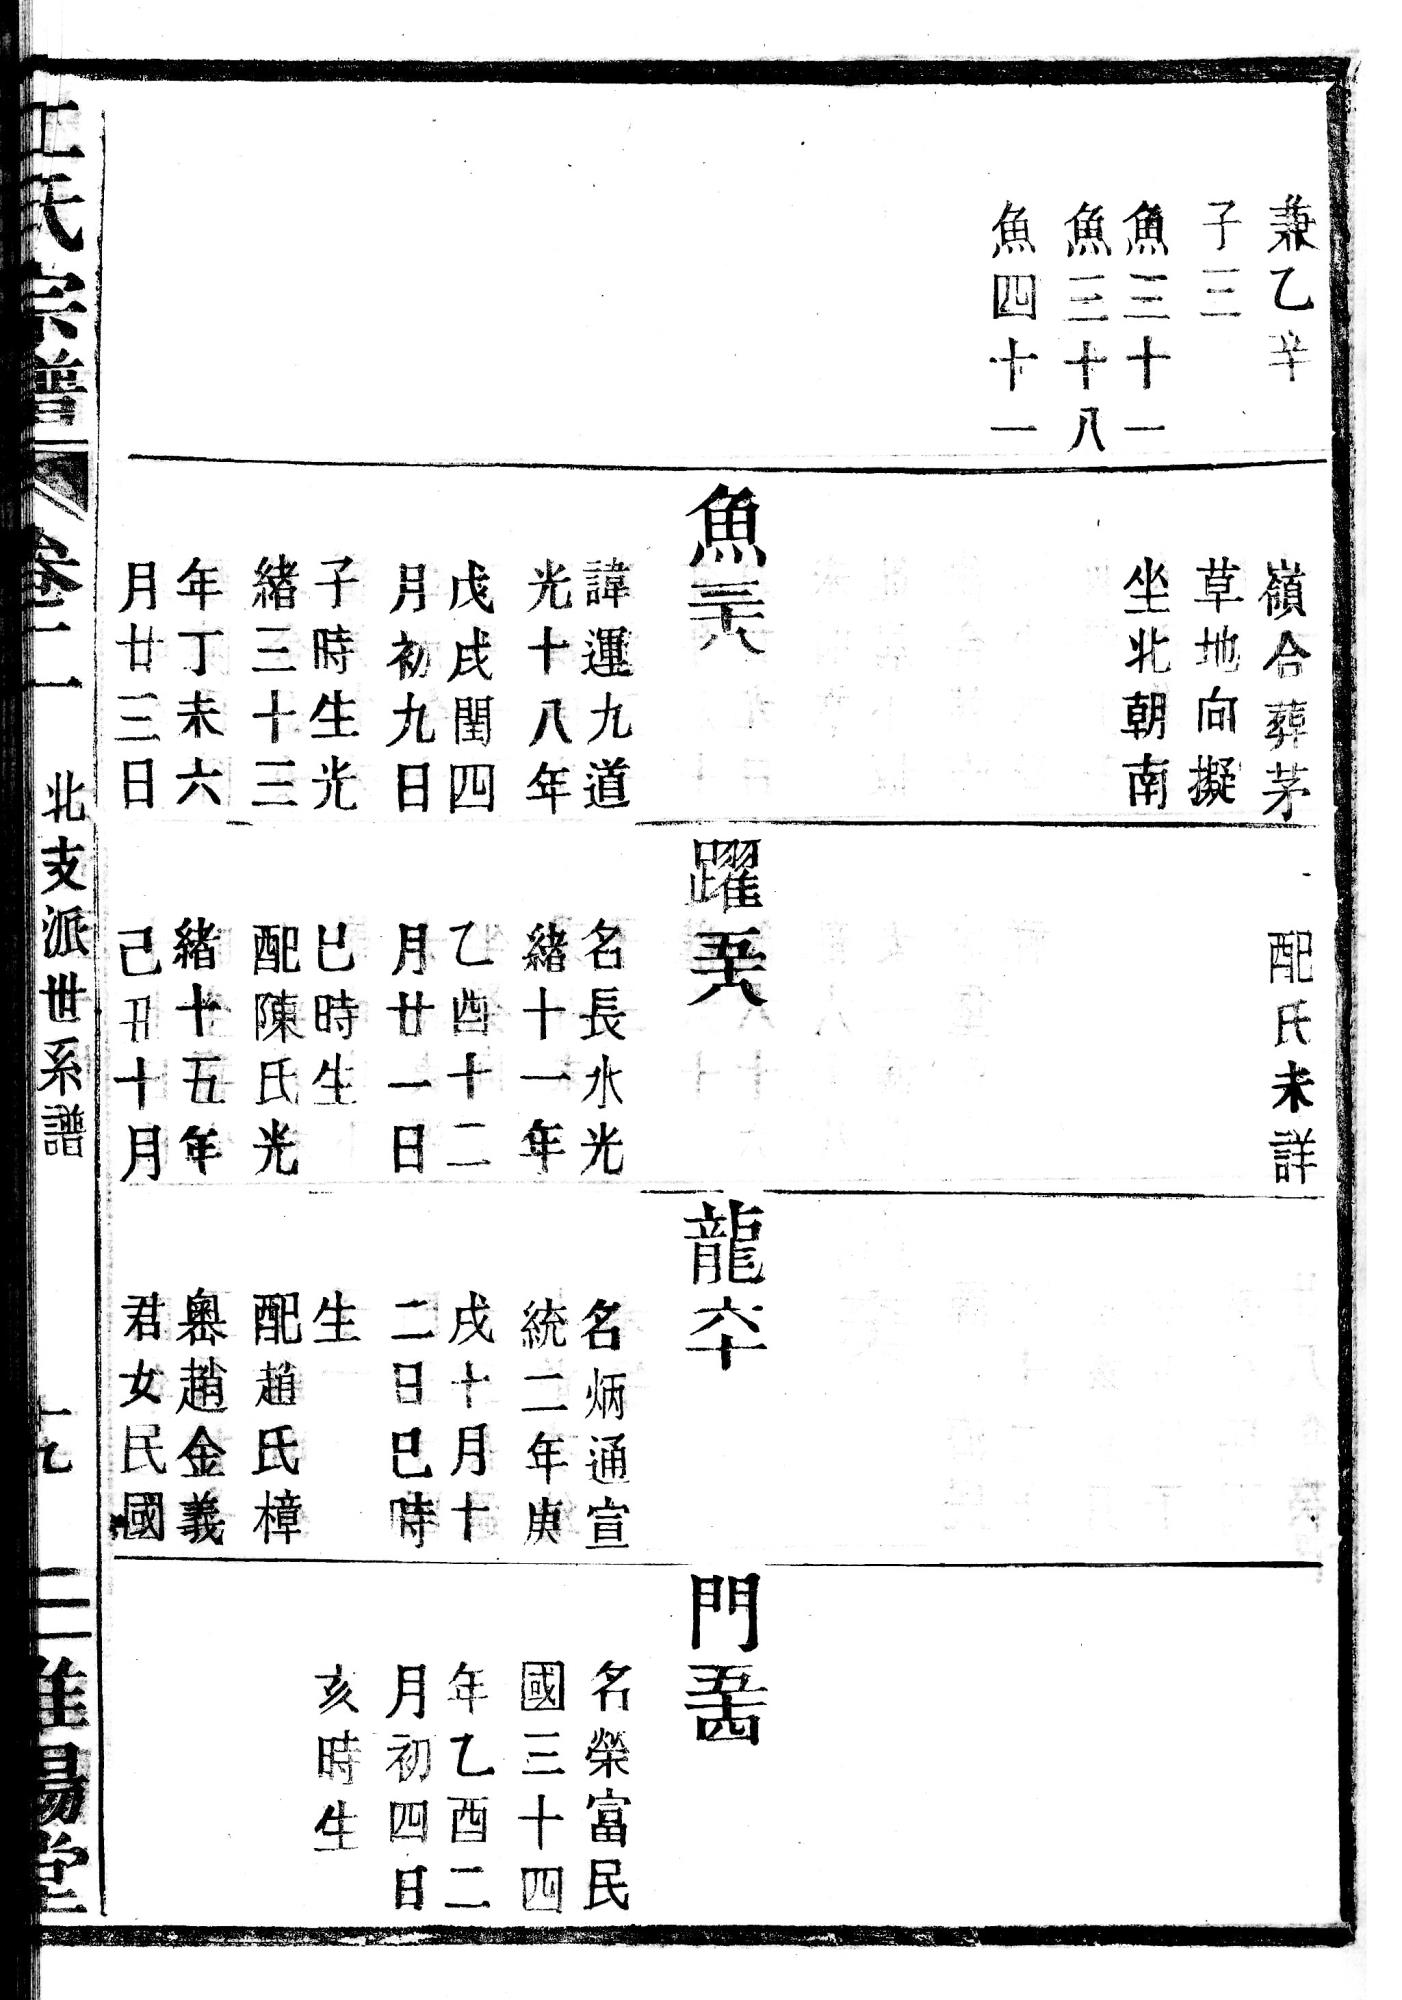 兼乙辛
子三
魚三十一
魚三十八
魚四十一
嶺合葬茅
草地向擬
坐北朝南
魚三十八
諱運九道
光十八年
戊戌閏四
月初九日
子時生光
緒三十三
年丁未六
月廿三日
配氏未詳
躍五十八
名長水光
緒十一年
乙酉十二
月廿一日
巳時生
配陳氏光
緒十五年
己丑十月
龍六十
名炳通宣
統二年庚
戌十月十
二日巳時
生
配趙氏樟
嶴趙金義
君女民國
門五十四
名榮富民
國三十四
年乙酉二
月初四日
亥時生
氏宗譜
卷二
北支派世系譜
十九
堂